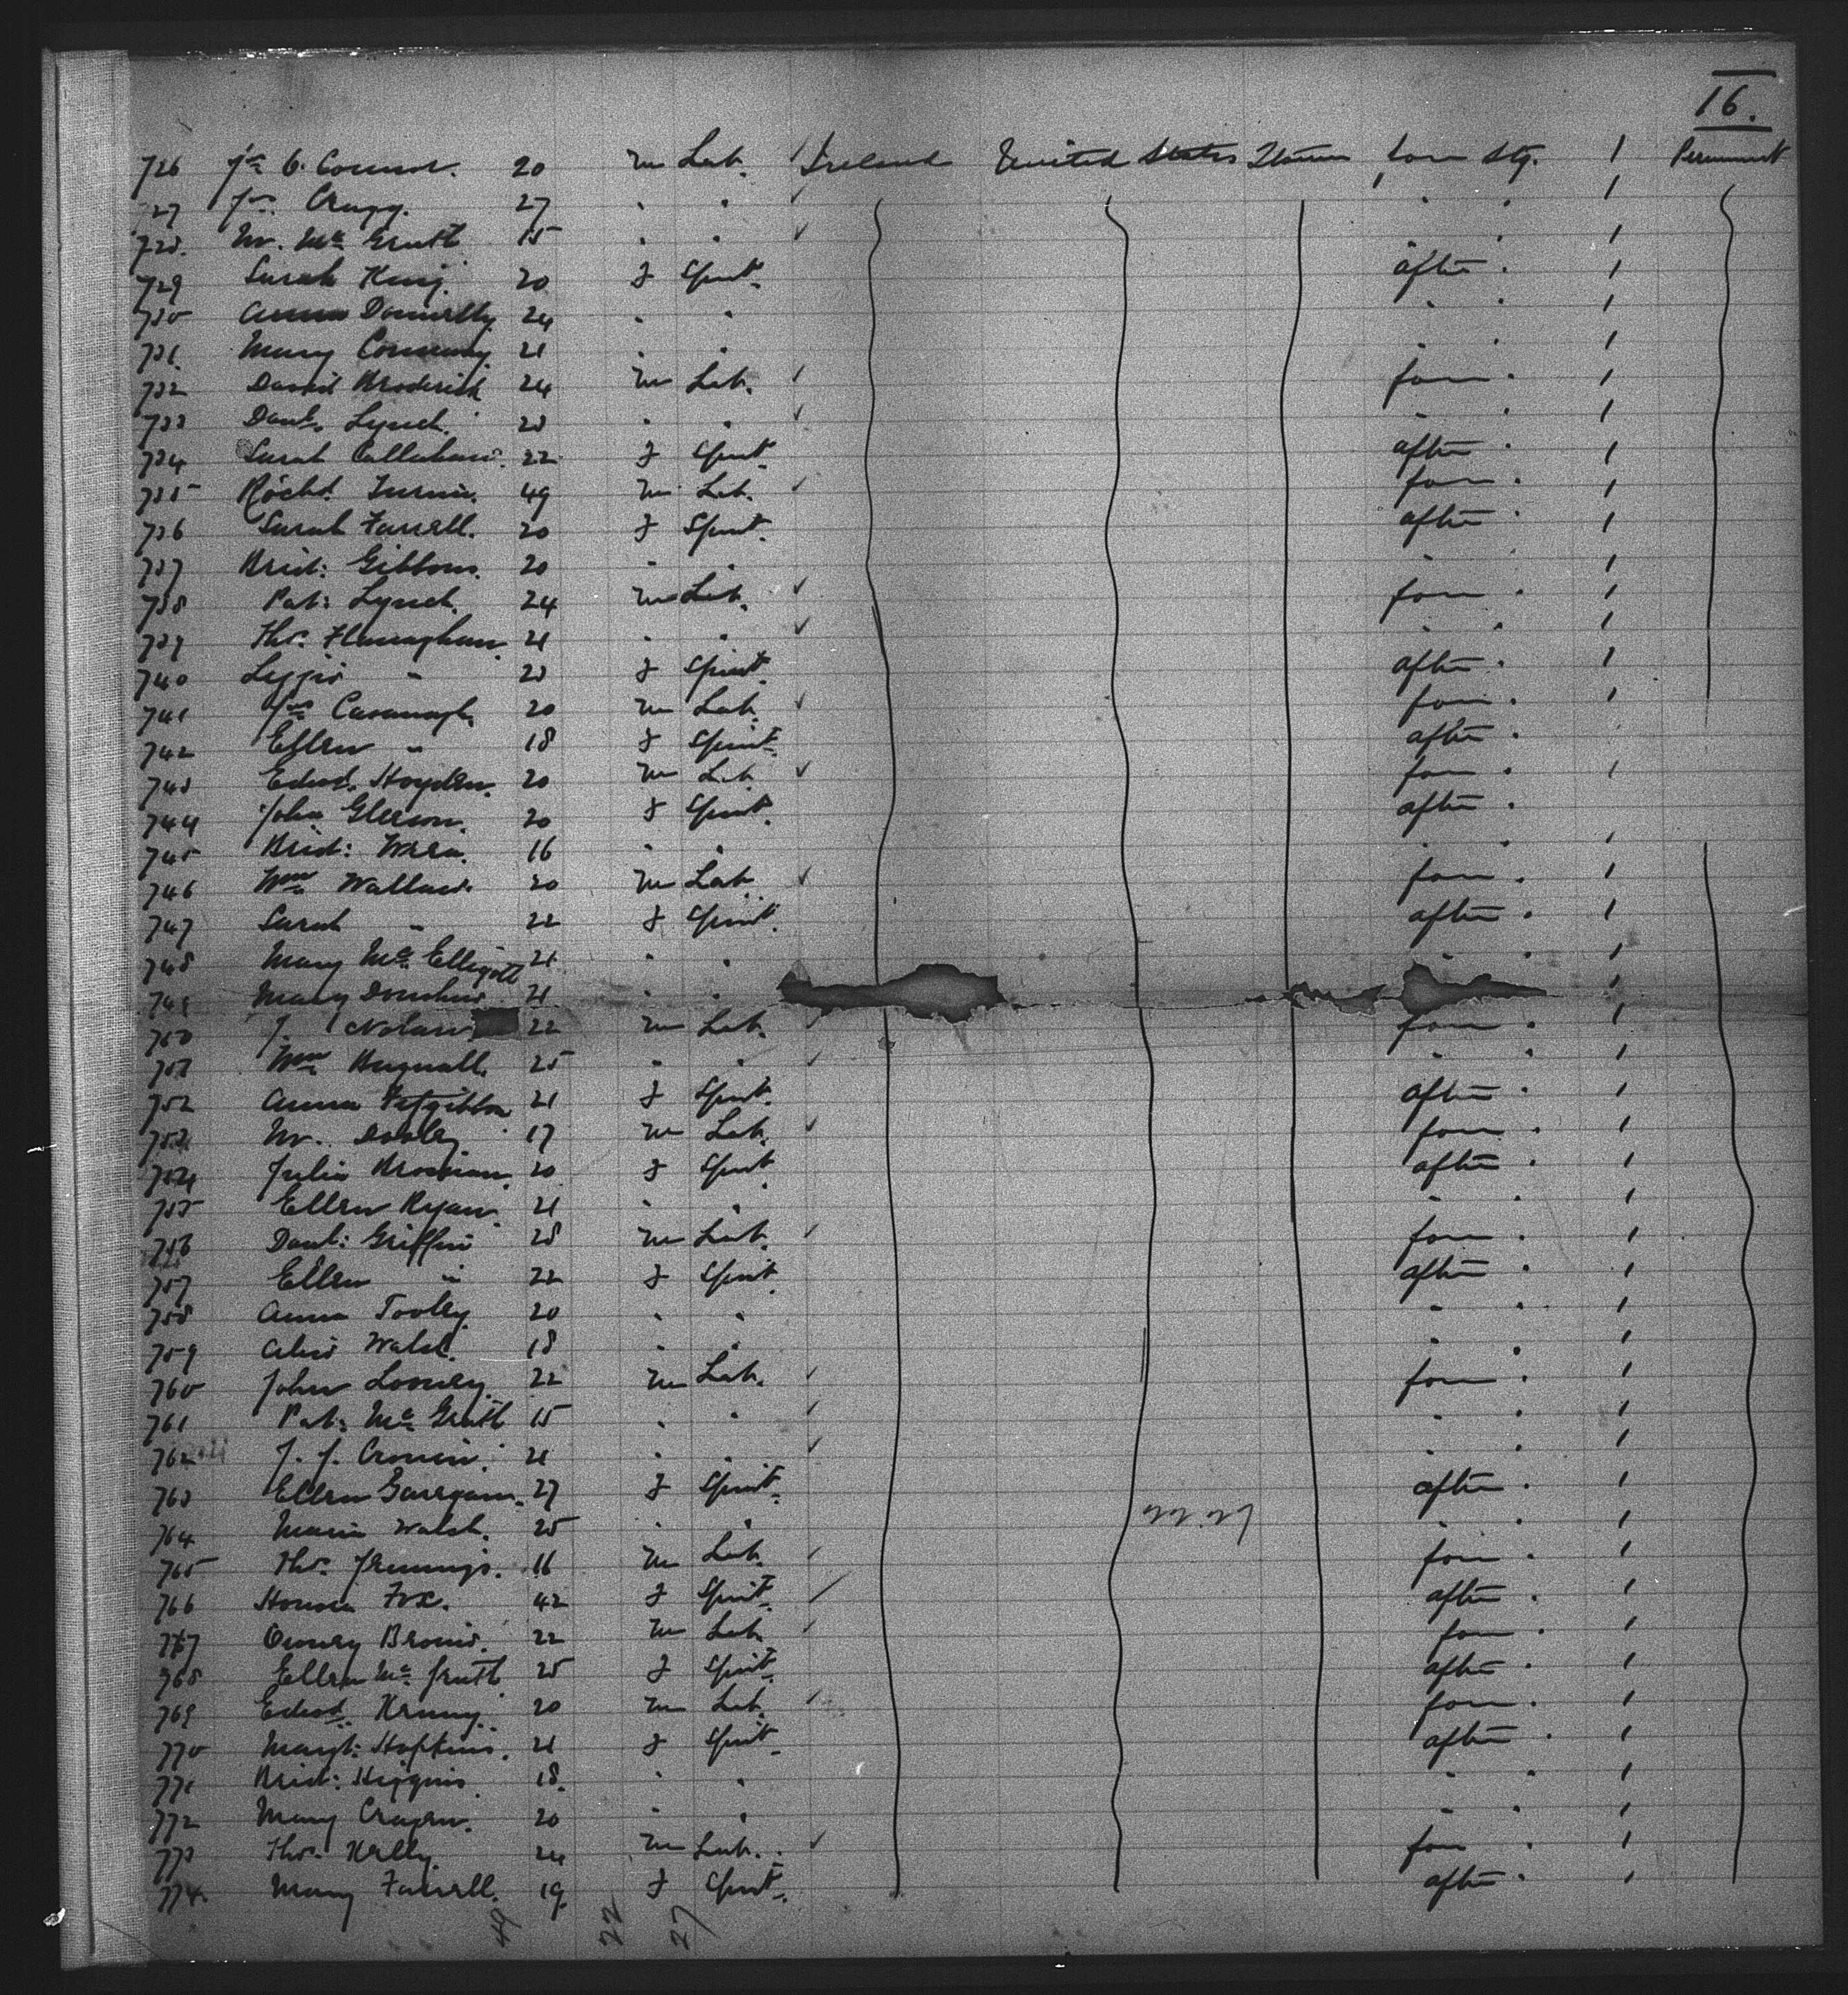 16.
726 Jno O'Connor. 20 m Lab. Ireland United States forw Stg. 1 Permanent
727 27 " " " " 1
728. W. McGrath 15 " " " " 1
729 Sarah King. 20 f Spinst. after " 1
730 Anna Donnelly 24 " " " " 1
731. Mary Conway. 21 " " " " 1
732 David Broderick 24 m Lab. forw " 1
733 Danl. Lynch. 23 " " " " 1
734 Sarah Callahan. 22 f Spinst. after " 1
735 Richd. 49 m Lab. forw " 1
736 Sarah Farrell. 20 f Spinst. after " 1
737 Brid: Gibbons. 20 " " " " 1
738 Pat: Lynch. 24 m Lab. forw " 1
739 Thos. Flanaghan 21 " " " " 1
740 Lizzie " 23 f Spinst. after " 1
741 Jno Cavanagh. 20 m Lab. forw " 1
742 Ellen " 18 f Spinst. after "
743 Edwd. Hayden. 20 m Lab. forw " 1
744 John Gleeson. 20 f Spinst. after "
745 Brid: 16 " " " " 1
746 Wm Wallace. 20 m Lab. forw " 1
747 Sarah " 22 f Spinst. after " 1
748 Mary McElligott 21 " " " " 1
749 Mary Donohue. 21 " " 1
750 J. Nolan 22 m Lab. forw " 1
751 Wm Bagnall. 25 " " " " 1
752 Anna Fitzgibbon 21 f Spinst. after " 1
753 W. Dooley 17 m Lab. forw " 1
754 Julia Brosnan. 20 f Spinst. after " 1
755 Ellen Ryan. 21 " " " " 1
756 Danl: Griffin 28 m Lab. forw " 1
757 Ellen " 22 f Spinst. after " 1
758 Anna Tooley. 20 " " " " 1
759 Alice Walsh. 18 " " " " 1
760 John Looney. 22 m Lab. forw " 1
761 Pat: McGrath 15 " " " " 1
762 J. J. Cronin. 21 " " " " 1
763 Ellen 27 f Spinst. after " 1
764 Maria Walsh. 25 " " " " 1
765 Thos. Jennings. 16 m Lab. forw " 1
766 Honora Fox. 42 f Spinst. after " 1
767 22 m Lab. forw " 1
768 Ellen McGrath 25 f Spinst. after " 1
769 Edwd. Kenny. 20 m Lab. forw " 1
770 Margt: Hopkins. 21 f Spinst. after " 1
771 Brid: Higgins 18. " " " " 1
772 Mary 20 " " " " 1
773 Thos. Kelly. 24 m Lab. forw " 1
774. Mary Farrell. 19. f Spinst. after " 1
49 22 27